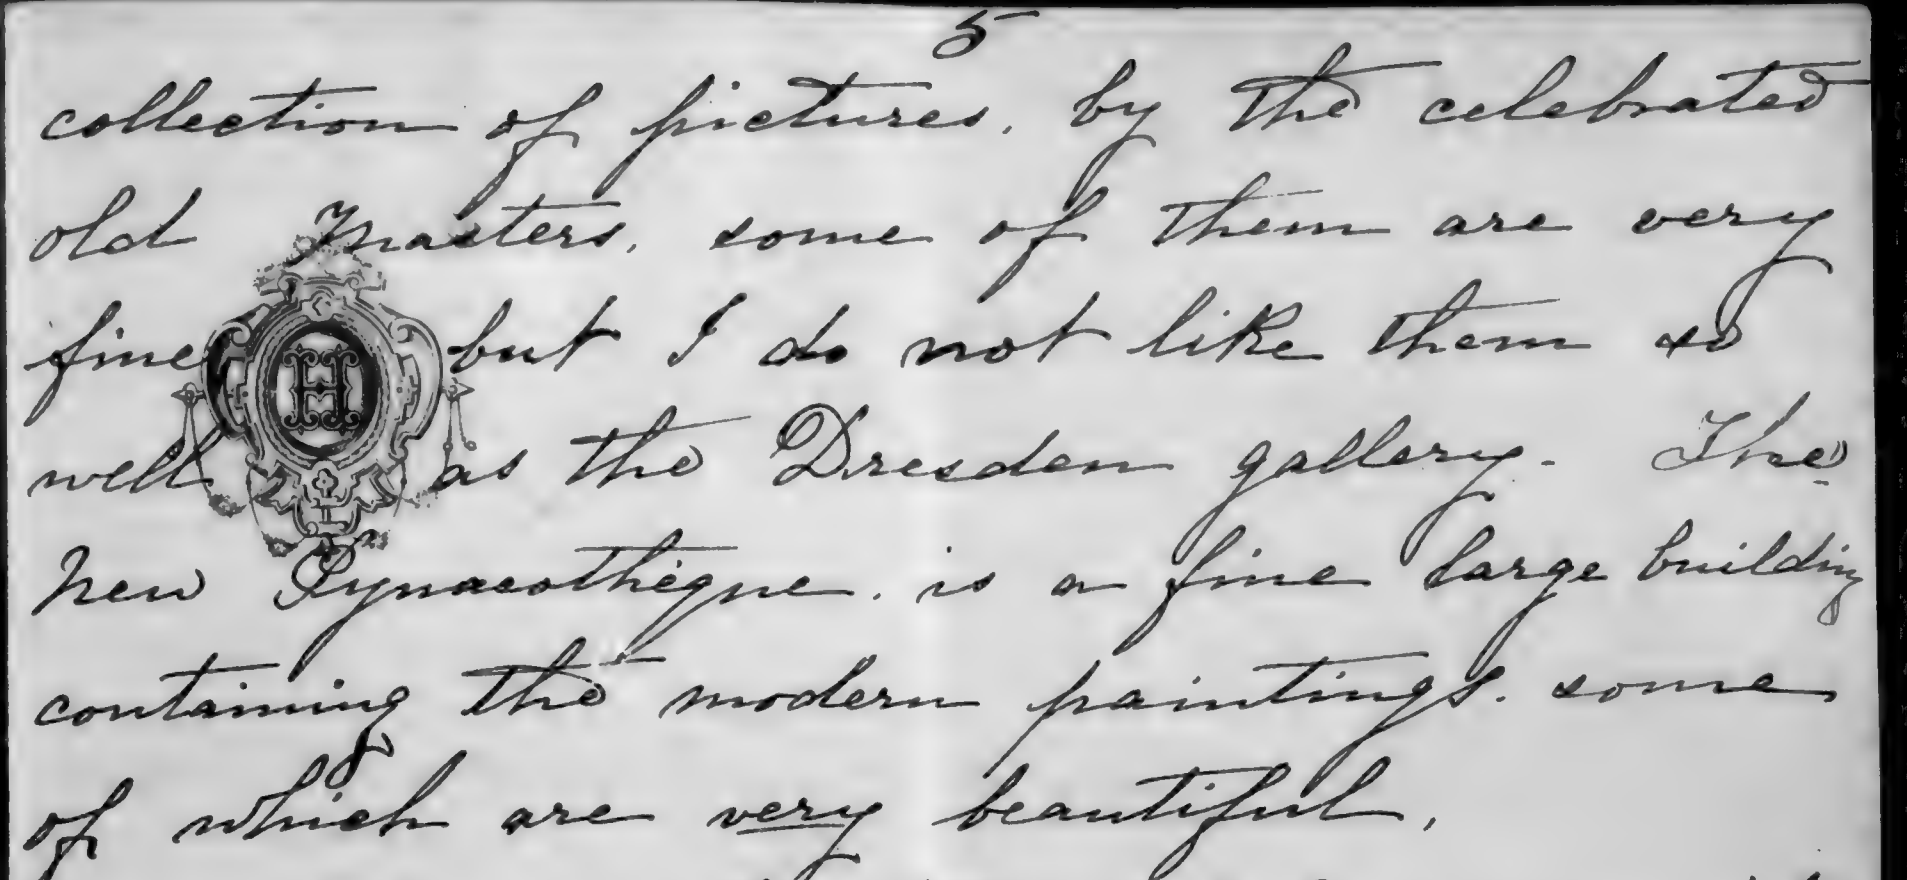 5
collection of pictures, by the celebrated
old Masters, some of them are very
fine but I do not like them so
well as the Dresden gallery. The
H
New Pynacothèque. is a fine large building
containing the modern paintings. some
of which are very beautiful.